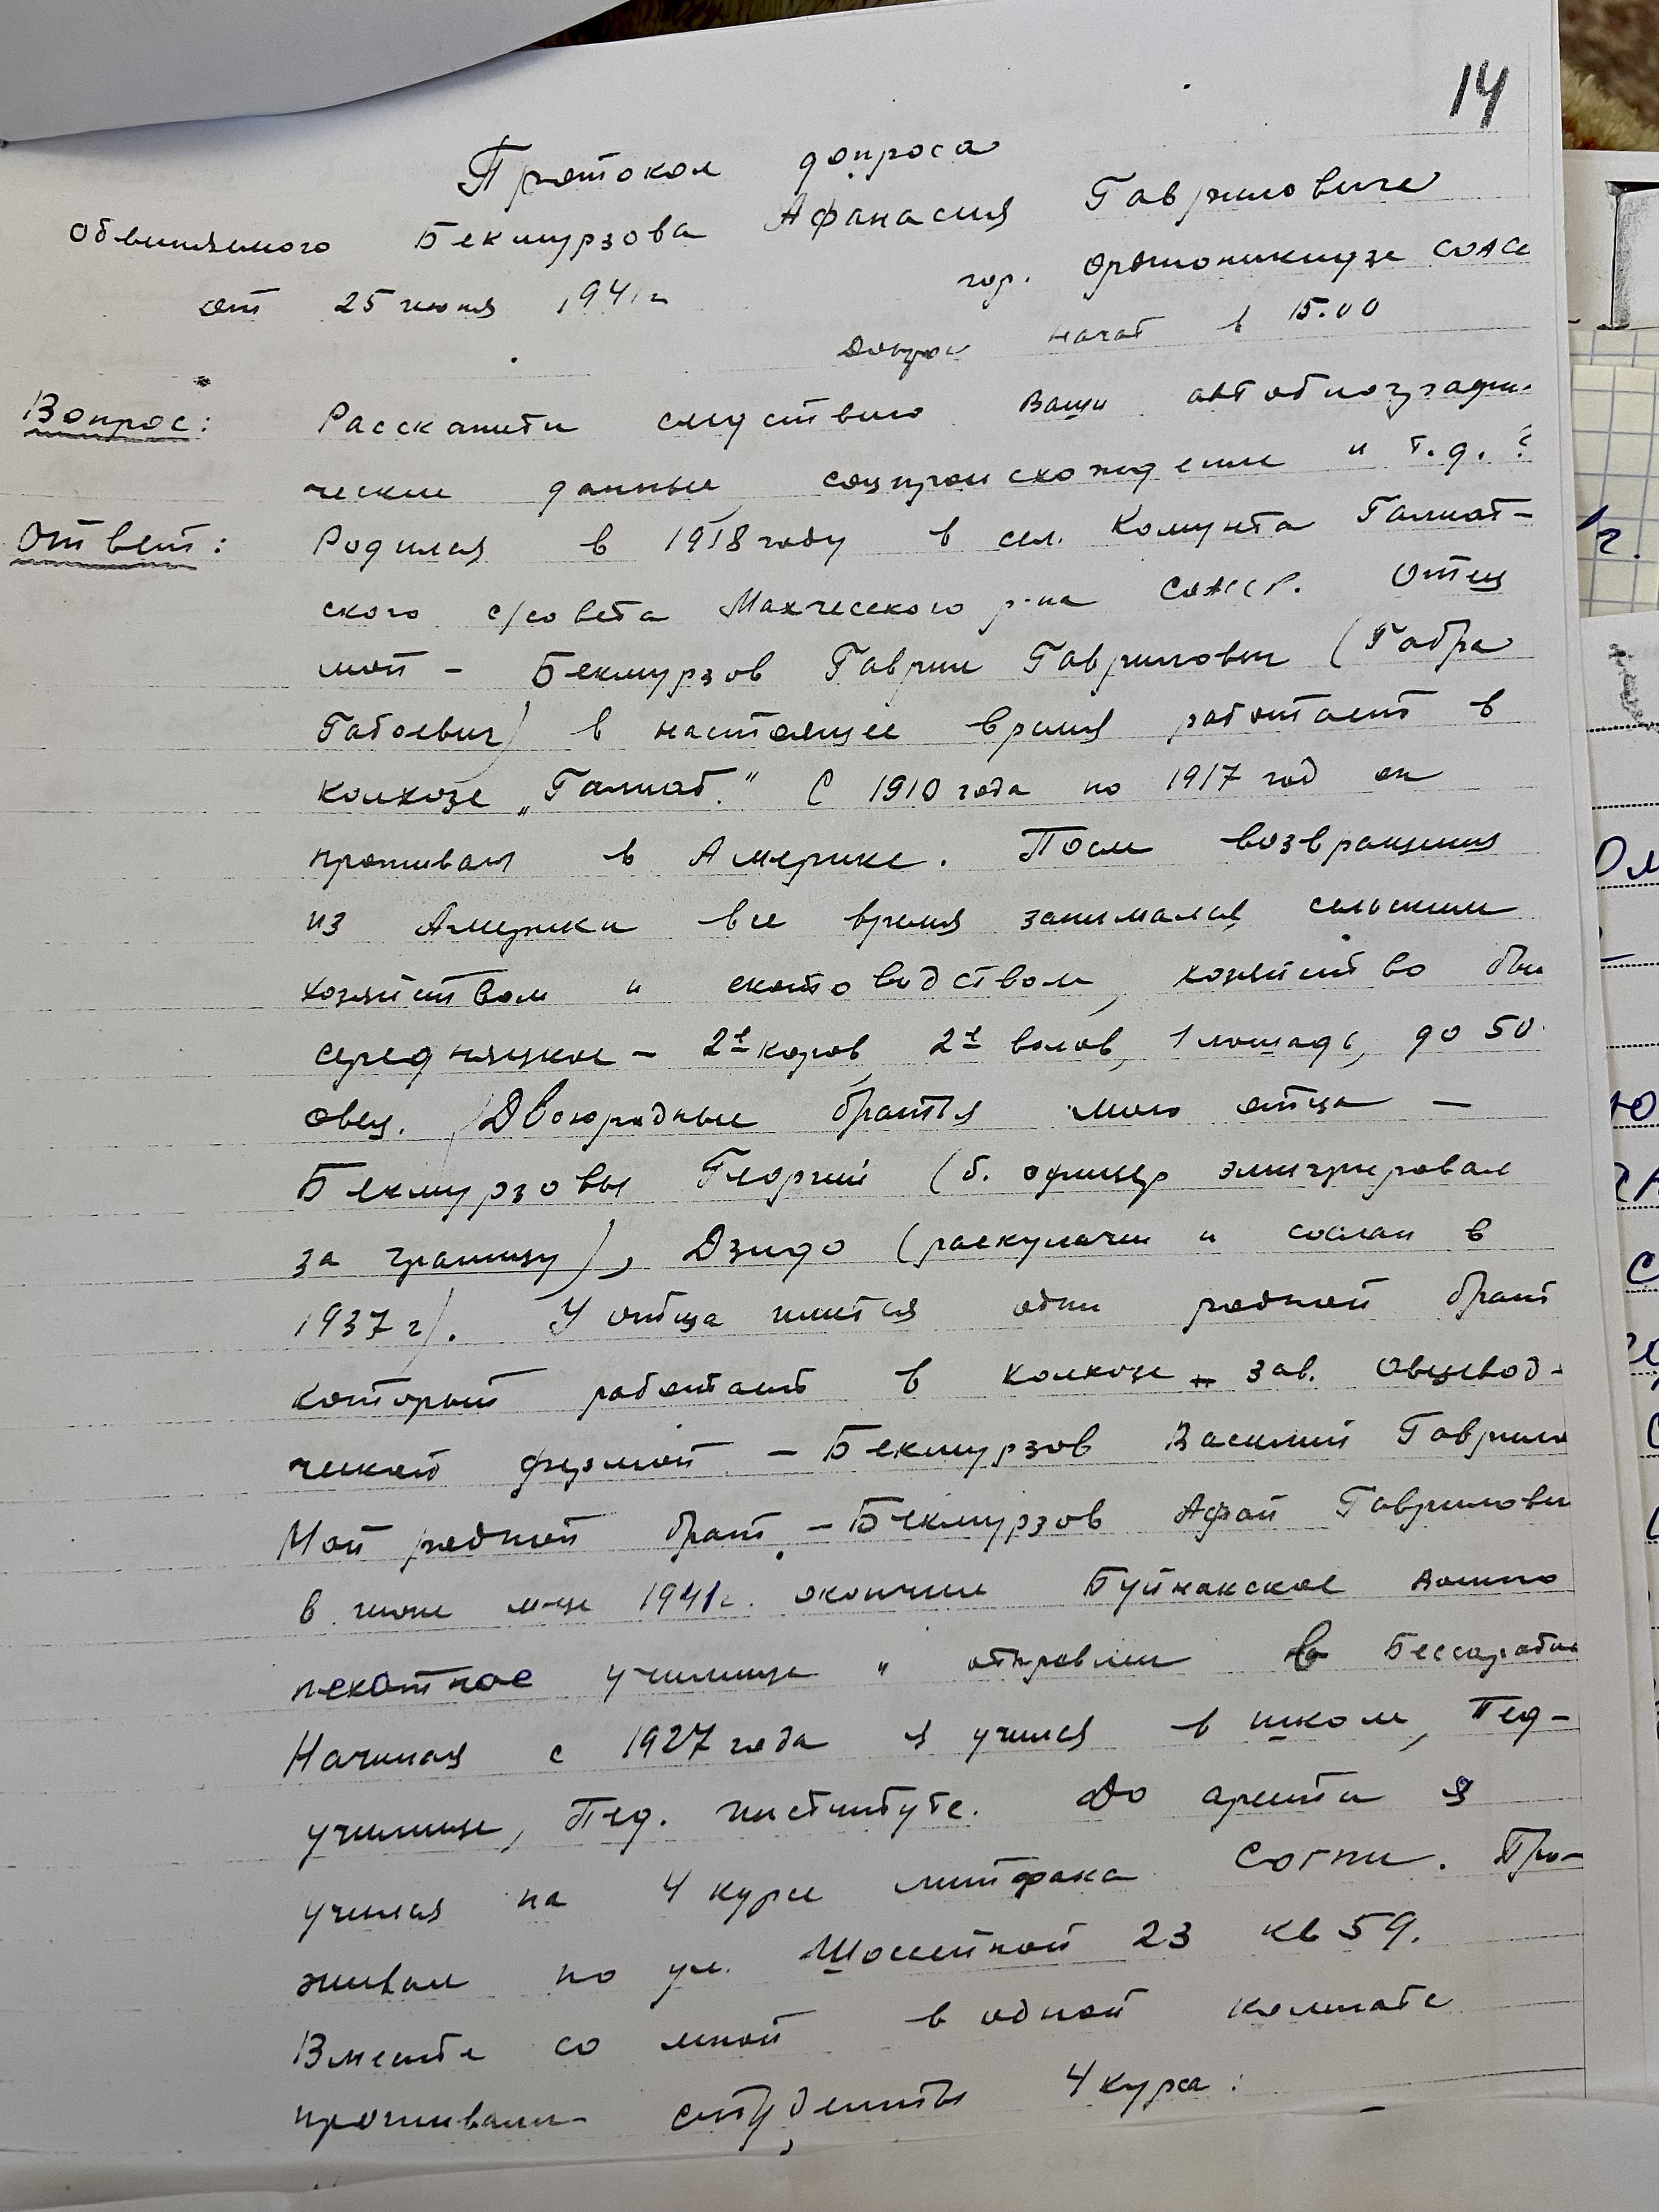 14
Протокол допроса
Обвиняемого Бекмурзова Афанасия Гавриловича
от 25 июня 1941 г гор. Орджоникидзе СОАСС
Допрос начат в 15.00
Вопрос: Расскажите следствию Ваши автобиографи-
ческие данные, соцпроисхождение и т.д.?
Ответ: Родился в 1918 году в сел. Комунта Галиат-
ского с/совета Махческого р-на СОАССР. Отец
мой - Бекмурзов Гаврил Гаврилович (Габра
Габоевич) в настоящее время работает в
колхозе „Галиат." С 1910 года по 1917 год он
проживал в Америке. После возвращения
из Америки все время занимался сельским
хозяйством и скотоводством, хозяйство был
середняцкое - 2е коров, 2е волов, 1 лошадь, до 50
овец. Двоюродные братья моего отца —
Бекмурзовы Георгий (б. офицер эмигрировал
за границу), Дзидо (раскулачен и сослан в
1937 г). У отца имеется один родной брат
который работает в колхозе зав. овцевод-
ческой фермой - Бекмурзов Василий Гаврило
Мой родной брат - Бекмурзов Афай Гаврилович
в июне м-це 1941 г. окончил Буйнакское военно
пехотное училище и отправлен в Бессарабию
Начиная с 1927 года я учился в школе, Пед-
училище, Пед. институте. До ареста я
учился на 4 курсе литфака СОГПИ. Про-
живал по ул. Шоссейной 23 кв 59.
Вместе со мной в одной комнате
проживали студенты 4 курса: